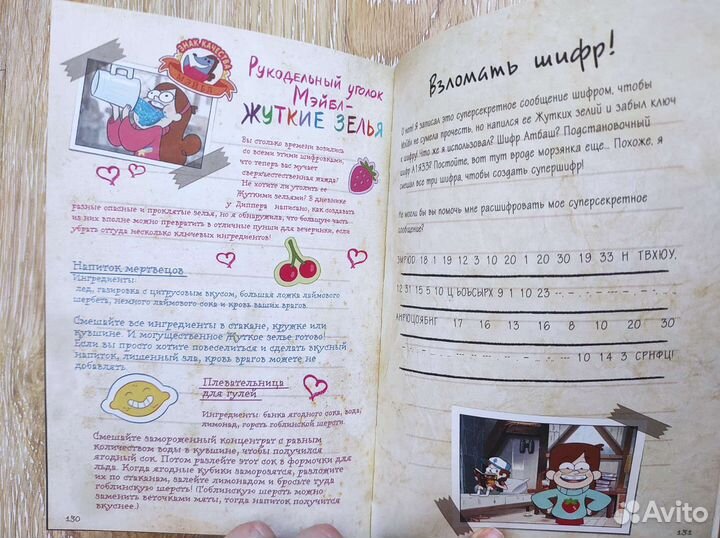 ЗНАК КАЧЕСТВА
МЭЙБЛ
Рукодельный уголок
Мэйбл-
ЖУТКИЕ ЗЕЛЬЯ
Вы столько времени возились
со всеми этими шифровками,
что теперь вас мучает
сверхъестественная жажда?
Не хотите ли утолить ее
Жуткими зельями? В дневнике
у Диппера написано, как создавать
разные опасные и проклятые зелья, но я обнаружила, что большую часть
из них вполне можно превратить в отличные пунши для вечеринки, если
убрать оттуда несколько ключевых ингредиентов!
Напиток мертвецов
Ингредиенты:
лед, газировка с цитрусовым вкусом, большая ложка лаймового
шербета, немного лаймового сока и кровь ваших врагов.
Смешайте все ингредиенты в стакане, кружке или
кувшине. И могущественное Жуткое зелье готово!
Если вы просто хотите повеселиться и сделать вкусный
напиток, лишенный зла, кровь врагов можете не
добавлять.
Плевательница
для гулей
Ингредиенты: банка ягодного сока, вода,
лимонад, горсть гоблинской шерсти.
Смешайте замороженный концентрат с равным
количеством воды в кувшине, чтобы получился
ягодный сок. Потом разлейте этот сок в формочки для
льда. Когда ягодные кубики заморозятся, разложите
их по стаканам, залейте лимонадом и бросьте туда
гоблинскую шерсть! (Гоблинскую шерсть можно
заменить веточками мяты, тогда напиток получится
вкуснее.)
130
Взломать шифр!
О нет! Я записал это суперсекретное сообщение шифром, чтобы
Мэйбл не сумела прочесть, но напился ее Жутких зелий и забыл ключ
к шифру! Что же я использовал? Шифр Атбаш? Подстановочный
шифр А1Я33? Постойте, вот тут вроде морзянка еще... Похоже, я
смешал все три шифра, чтобы создать супершифр!
Не могли бы вы помочь мне расшифровать мое суперсекретное
сообщение?
18 1 19 12 30 1 20 30 19 33 Н ТВХЮУ,
12 31 15 5 10 Ц ЬОЬСЫРХ 9 1 10 23
17 16 13 1 10 16 20 30
10 14 3 СРНФЦ!
Avito
131